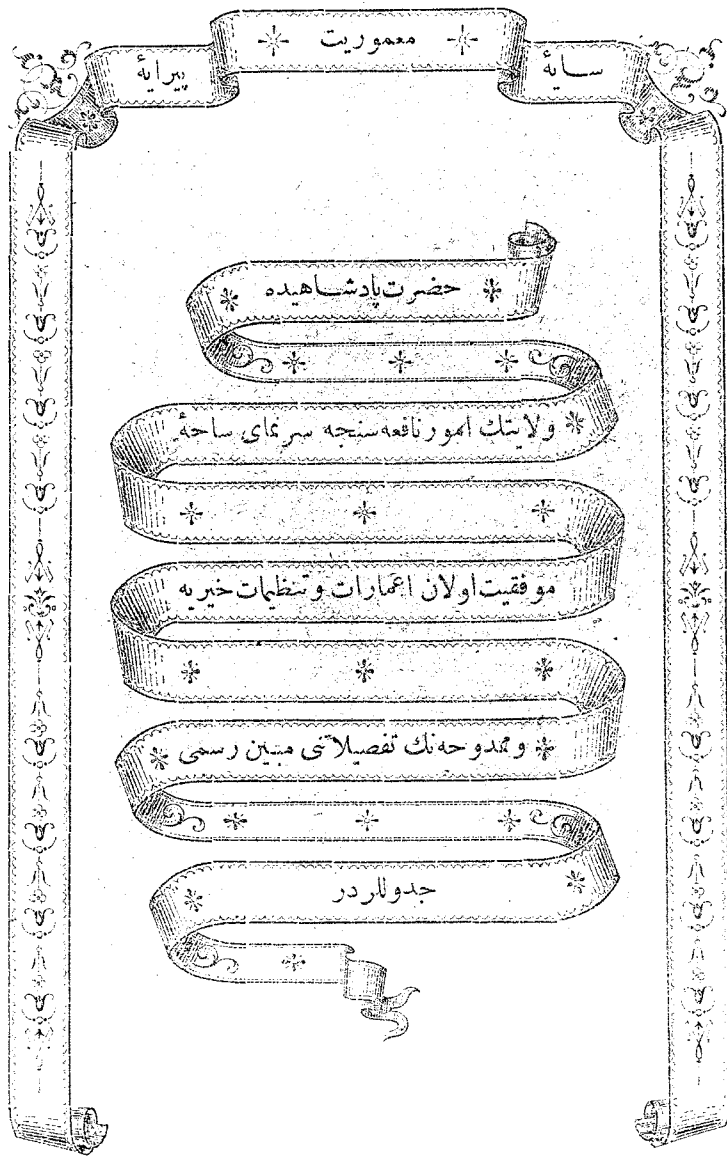 سایهٔ
معموریت
پیرایهٔ
حضرت پادشاهیده
ولایتك امور نافعه سنجه سرنمای ساحهٔ
موفقیت اولان اعمارات و تنظیمات خیریه
و ممدوحه نك تفصیلاتنی مبین رسمی
جدوللردر